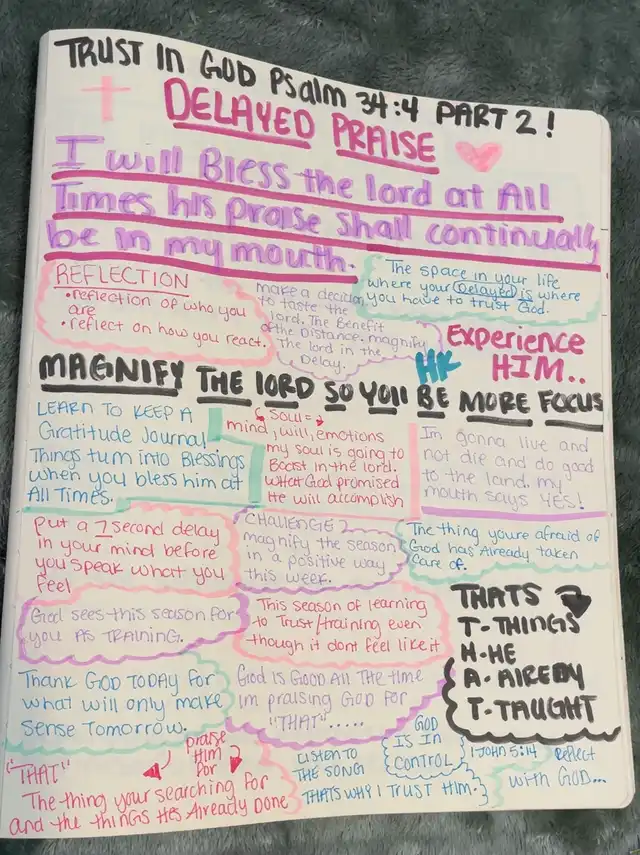 TRUST IN GOD Psalm 34:4 PART 2!
DELAYED PRAISE
I will Bless the lord at All
Times his praise shall continually
be in my mouth.
REFLECTION
• reflection of who you
are
• reflect on how you react.
make a decision
to taste the
lord. The Benefit
of the Distance. magnify
the lord in the
Delay.
The space in your life
where your Delayed is where
you have to trust God.
Experience
HIM..
HK
MAGNIFY THE lORD SO YOU BE MORE FOCUS
LEARN TO KEEP A
Gratitude Journal
Things turn into Blessings
when you bless him at
All Times.
Soul =
mind, will, emotions
my soul is going to
Boast in the lord.
what God promised
He will accomplish
Im gonna live and
not die and do good
to the land. my
mouth says YES!
Put a 7 second delay
in your mind before
you speak what you
feel
CHALLENGE 2
magnify the season
in a positive way
this week.
The thing youre afraid of
God has Already taken
care of.
God sees this season for
you AS TRAINING.
This season of learning
to Trust/training even
though it dont feel like it
THATS
T-THINGS
H-HE
A-AlREDY
T-TAUGHT
Thank GOD TODAY for
what will only make
sense Tomorrow.
GOD IS GOOD All THE time
im praising GOD for
"THAT".....
"THAT"
praise
HIM
for
The thing your searching for
and the things Hes Already Done
LISTEN TO
THE SONG
THATS WHY I TRUST HIM.
GOD
IS IN
CONTROL
1 JOHN 5:14
Reflect
with GOD...